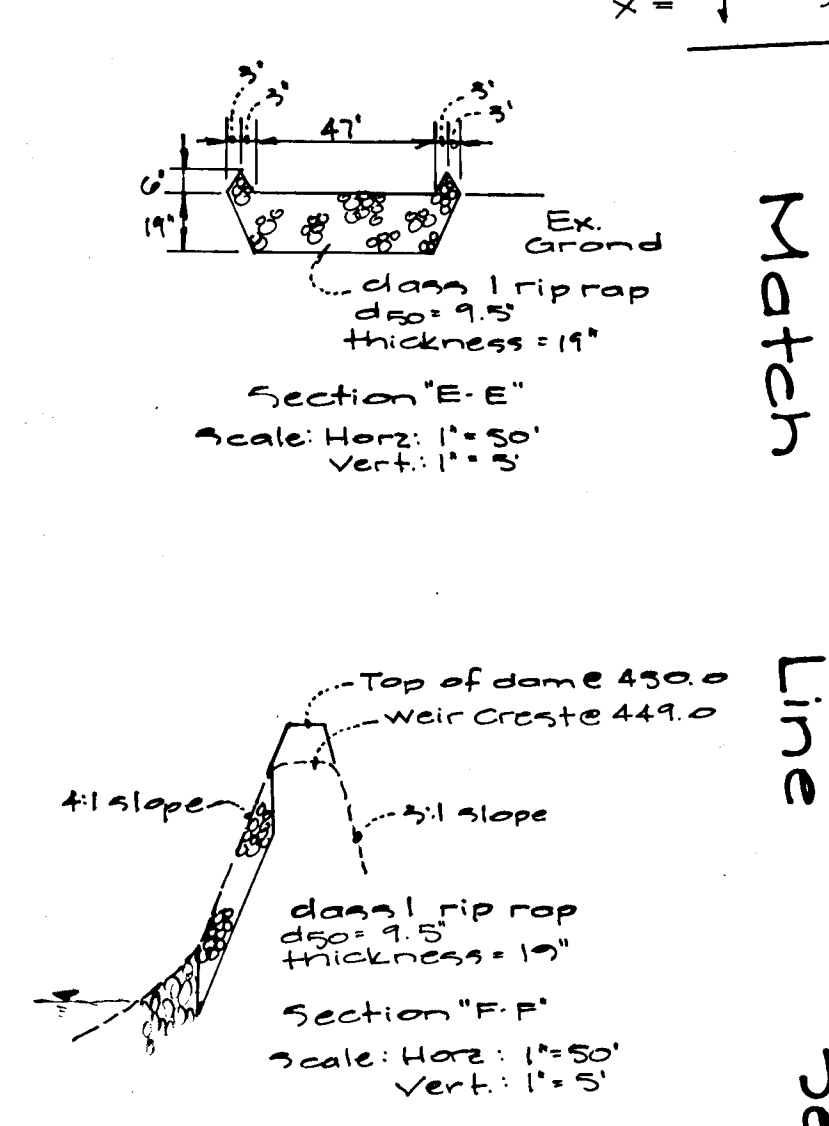 x =
3' 3'
3" 3'
47'
6"
19"
Ex.
Grond
class 1 rip rap
d50= 9.5"
thickness = 19"
Section "E-E"
Scale: Horz: 1"=50'
Vert.: 1"=5'
Match
Line
Top of dam @ 450.0
Weir Crest @ 449.0
4:1 slope
3:1 slope
class 1 rip rap
d50= 9.5"
thickness = 19"
Section "F-F"
Scale: Horz: 1"=50'
Vert.: 1"=5'